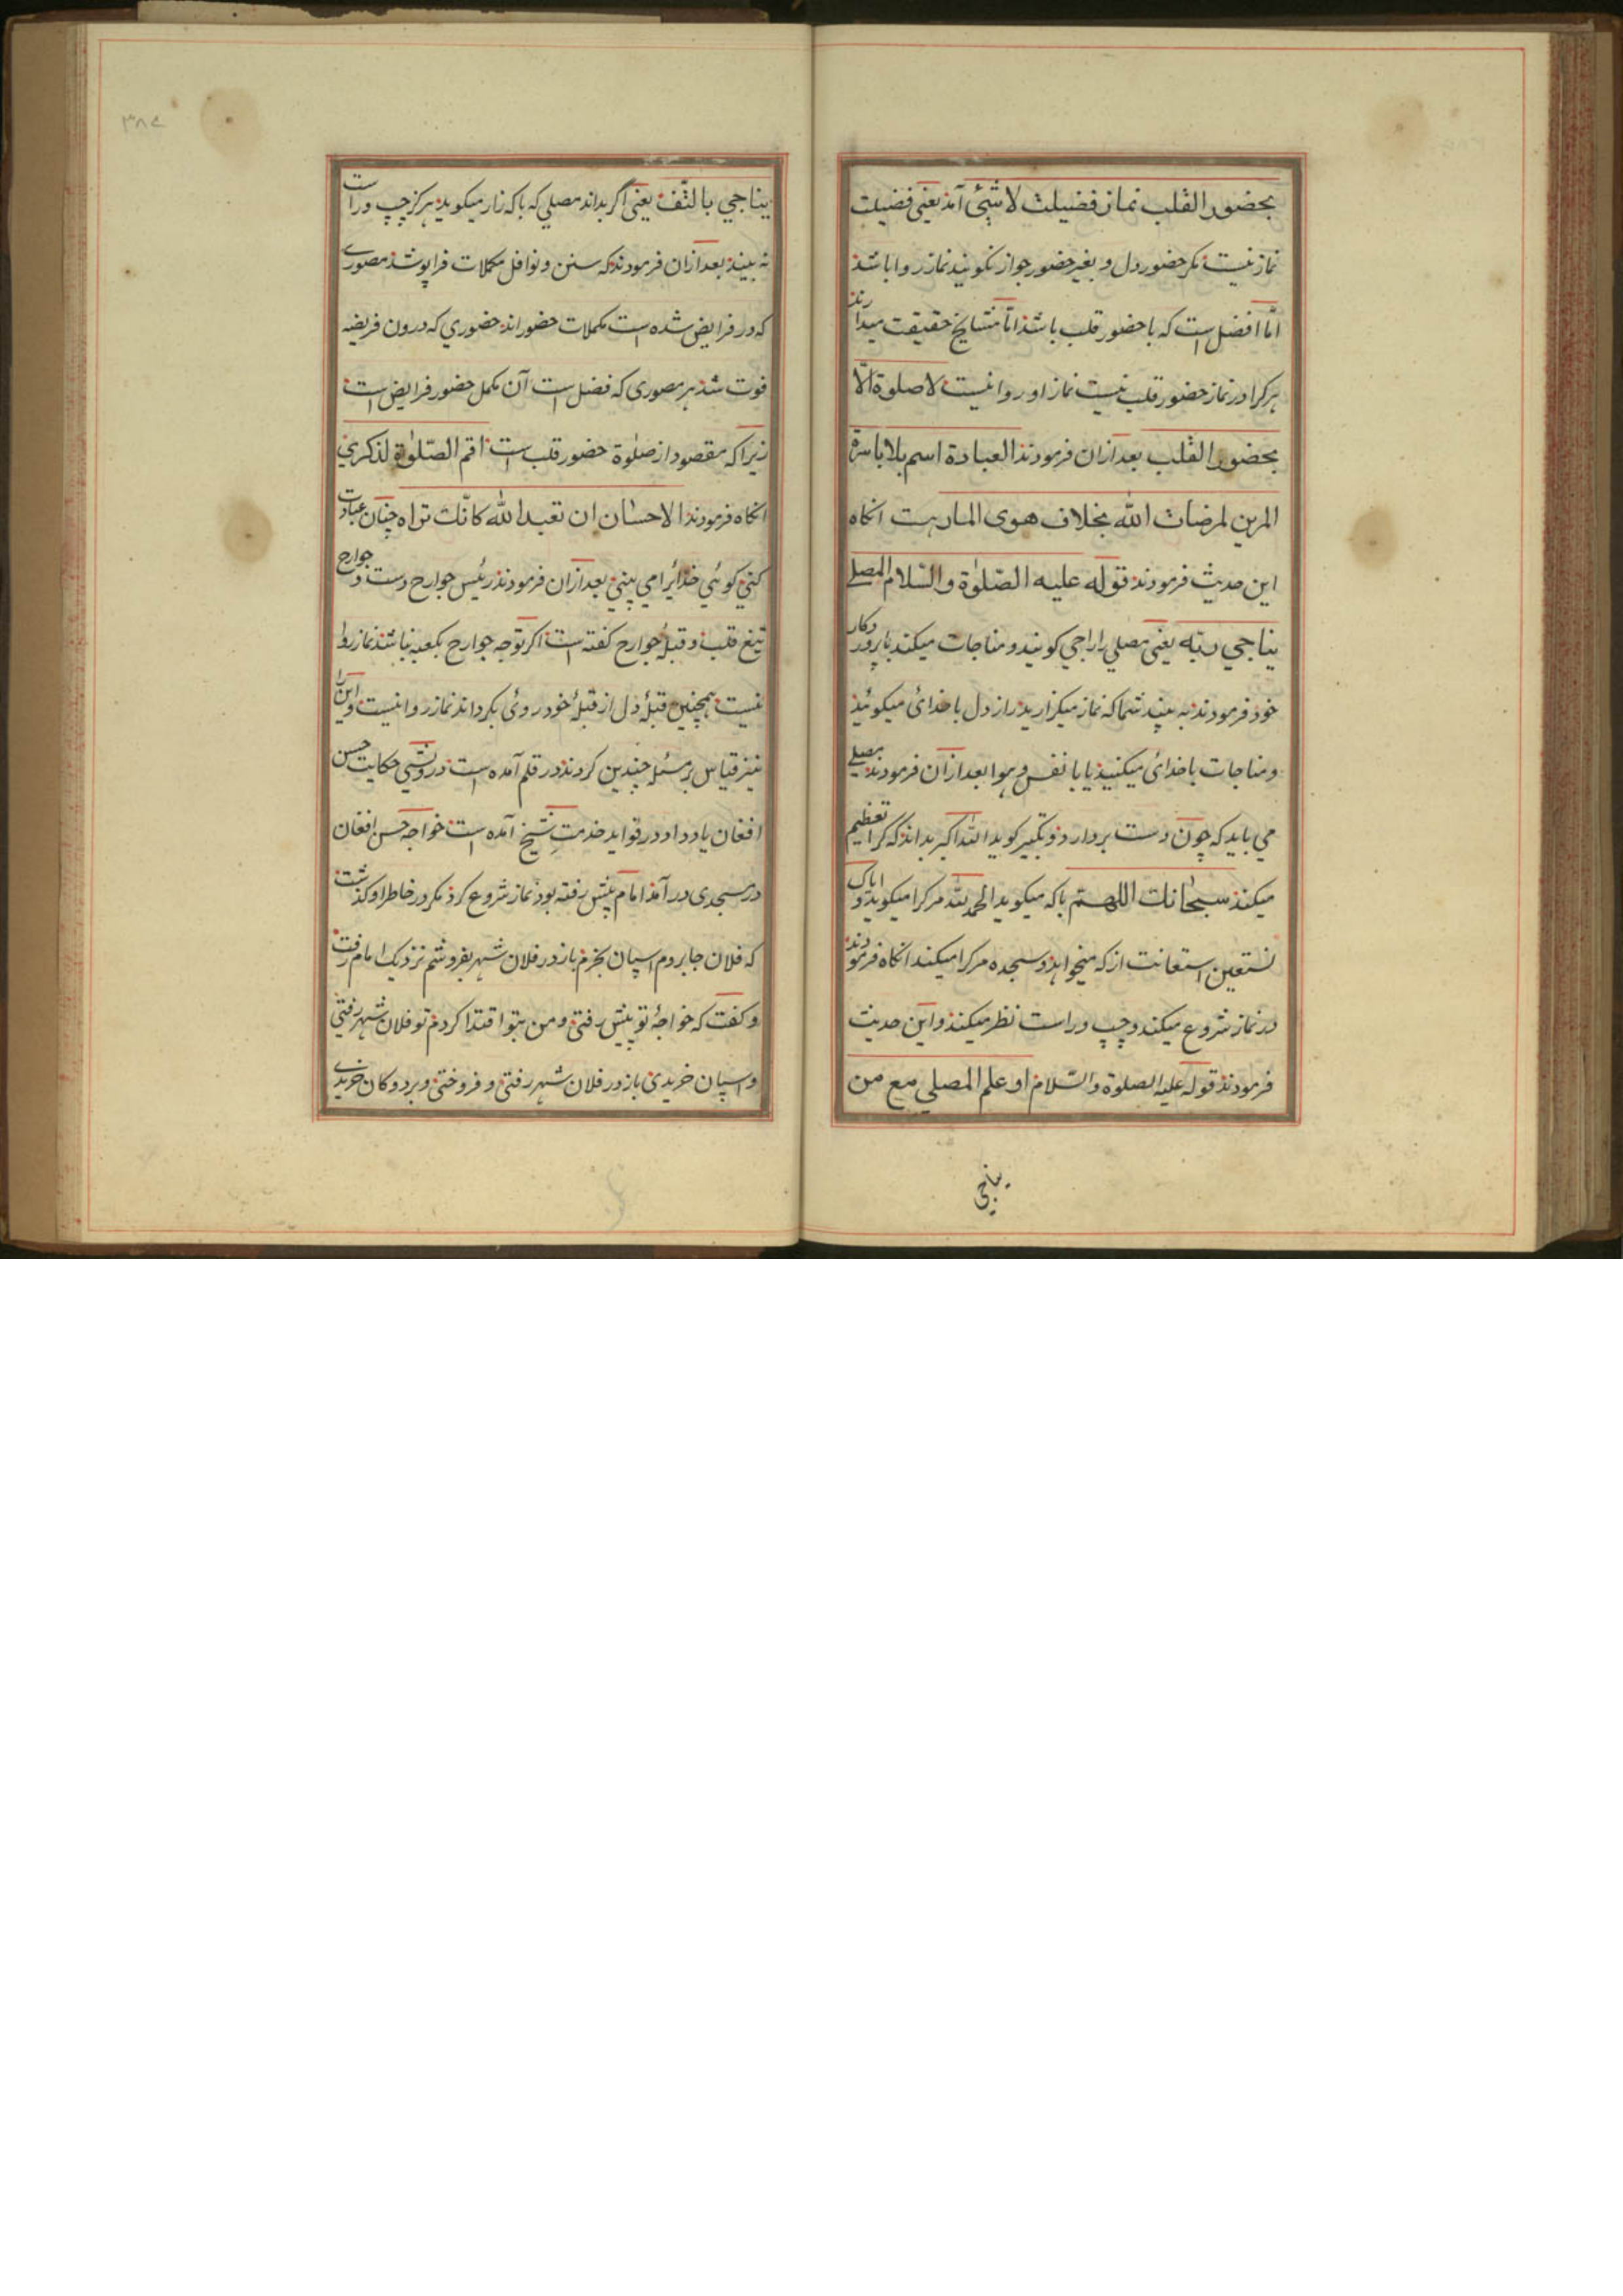 بحضور القلب نماز فضیلت لا شئی آمد یعنی فضیلت
نماز نیست مکر حضور دل و بغیر حضور جواز نکویند نماز روا باشد
امّا افضل است که با حضور قلب باشد امّا مشایخ حقیقت میدارند
هر کرا در نماز حضور قلب نیست نماز او روا نیست لا صلوة الّا
بحضور القلب بعد ازان فرمودند العبادة اسم بلا
لمرضات الله بخلاف هوی انکاه
این حدیث فرمودند قوله علیه الصّلوٰة والسّلام المصلی
یناجی ربّه یعنی مصلی را راجی کویند و مناجات میکند با پروردکار
خود فرمودند به بینید شما که نماز میکزارید راز دل با خدائ میکوئید
و مناجات با خدائ میکنید یا با نفس و هوا بعد ازان فرمودند مصلی
می باید که چون دست بردارد و تکبیر کوید الله اکبر بداند که کرا تعظیم
میکند سبحانک اللهم با که میکوید الحمد لله مر کرا میکوید و ایاک
نستعین استعانت از که میخواهد و سجده مر کرا میکند انکاه فرمودند
در نماز شروع میکند و چپ و راست نظر میکند و این حدیث
فرمودند قوله علیه الصلوة والسّلام او علم المصلی مع من
یناجی
۳۸۷
یناجی ما التفت یعنی اگر بداند مصلی که با که راز میکوید هرکز چپ و راست
نه بیند بعد ازان فرمودند که سنن و نوافل مکملات فرا
که در فرایض شده است مکملات حضور اند حضوری که درون فریضه
فوت شد هر که فضل است آن مکمل حضور فرایض است
زیرا که مقصود از صلوٰة حضور قلب است اقم الصّلوٰة لذکری
انکاه فرمودند الاحسان ان تعبد الله کانّک تراه چنان عبادت
کنی کوئی خدائرا می بینی بعد ازان فرمودند رئیس جوارح دست و جوارح
تبع قلب و قبلهٔ جوارح کفته است اکر توجه جوارح بکعبه نباشد نماز روا
نیست همچنین قبلهٔ دل از قبلهٔ خود روئ بکرداند نماز روا نیست و این را
نیز قیاس بر مسئله چندین کردند در قلم آمده است درویشی حکایت حسن
افغان یاد داد در فواید خدمتِ شیخ آمده است خواجه حسن افغان
در مسجدی در آمد امام پیش رفته بود نماز شروع کرد مکر در خاطر او کذشت
که فلان جا بروم اسپان بخرم باز در فلان شهر بفروشم نزدیک امام رفت
و کفت که خواجهٔ تو پیش رفتی و من بتو اقتدا کردم تو فلان شهر رفتی
و اسپان خریدی باز در فلان شهر رفتی و فروختی و بردوکان خریدی